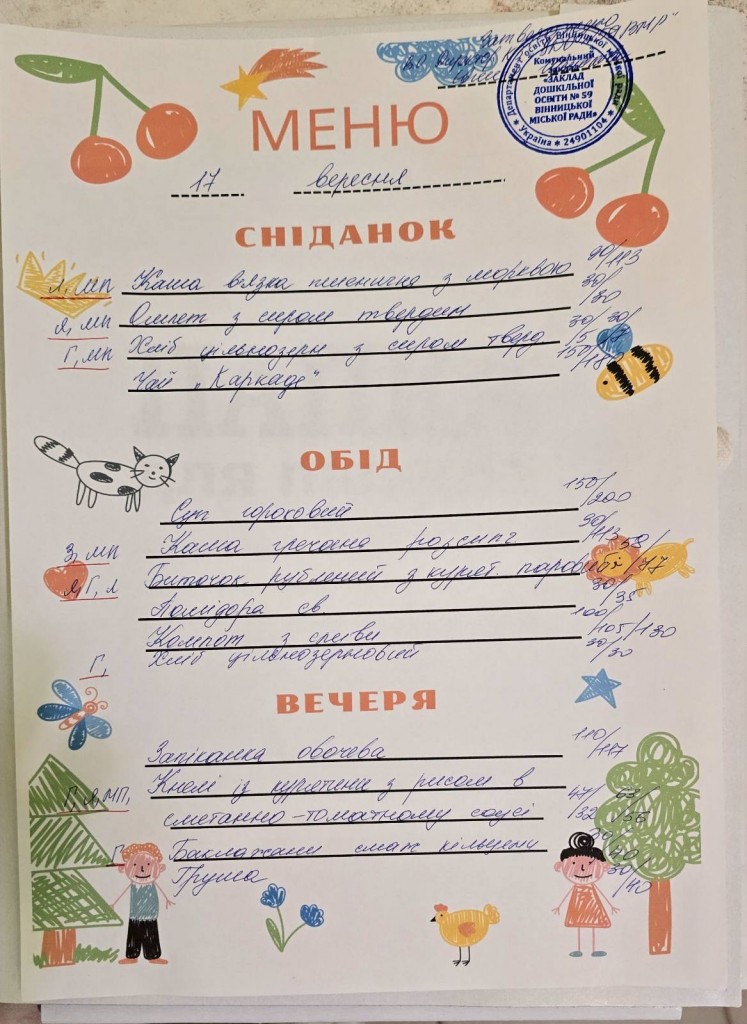 Затверджую
В.О. директор КЗ "ЗДО №59 ВМР"
Департамент освіти Вінницької міської ради
Комунальний заклад
«ЗАКЛАД
ДОШКІЛЬНОЇ
ОСВІТИ № 59
ВІННИЦЬКОЇ
МІСЬКОЇ РАДИ»
* Україна * 24901104 *
МЕНЮ
17 вересня
СНІДАНОК
Л, МП Каша в'язка пшенична з морквою 90/113
Я, МП Омлет з сиром твердим 30/30
Г, МП Хліб цільнозерн з сиром тверд 30/30/5
Чай „Каркаде" 150/180
ОБІД
Суп гороховий 150/200
З, МП Каша гречана розсипч 90/113
Я, Г, Л Биточок рублений з курят. паровий 58/77
Помідора св. 30/35
Компот з сливи 100/105/130
Г, Хліб цільнозерновий 30/30
ВЕЧЕРЯ
Запіканка овочева 110/147
Г, Я, МП, Кнелі із курятини з рисом в
сметанно-томатному соусі 47/63/32
Г Баклажани смаж кільцями
Груша 30/40